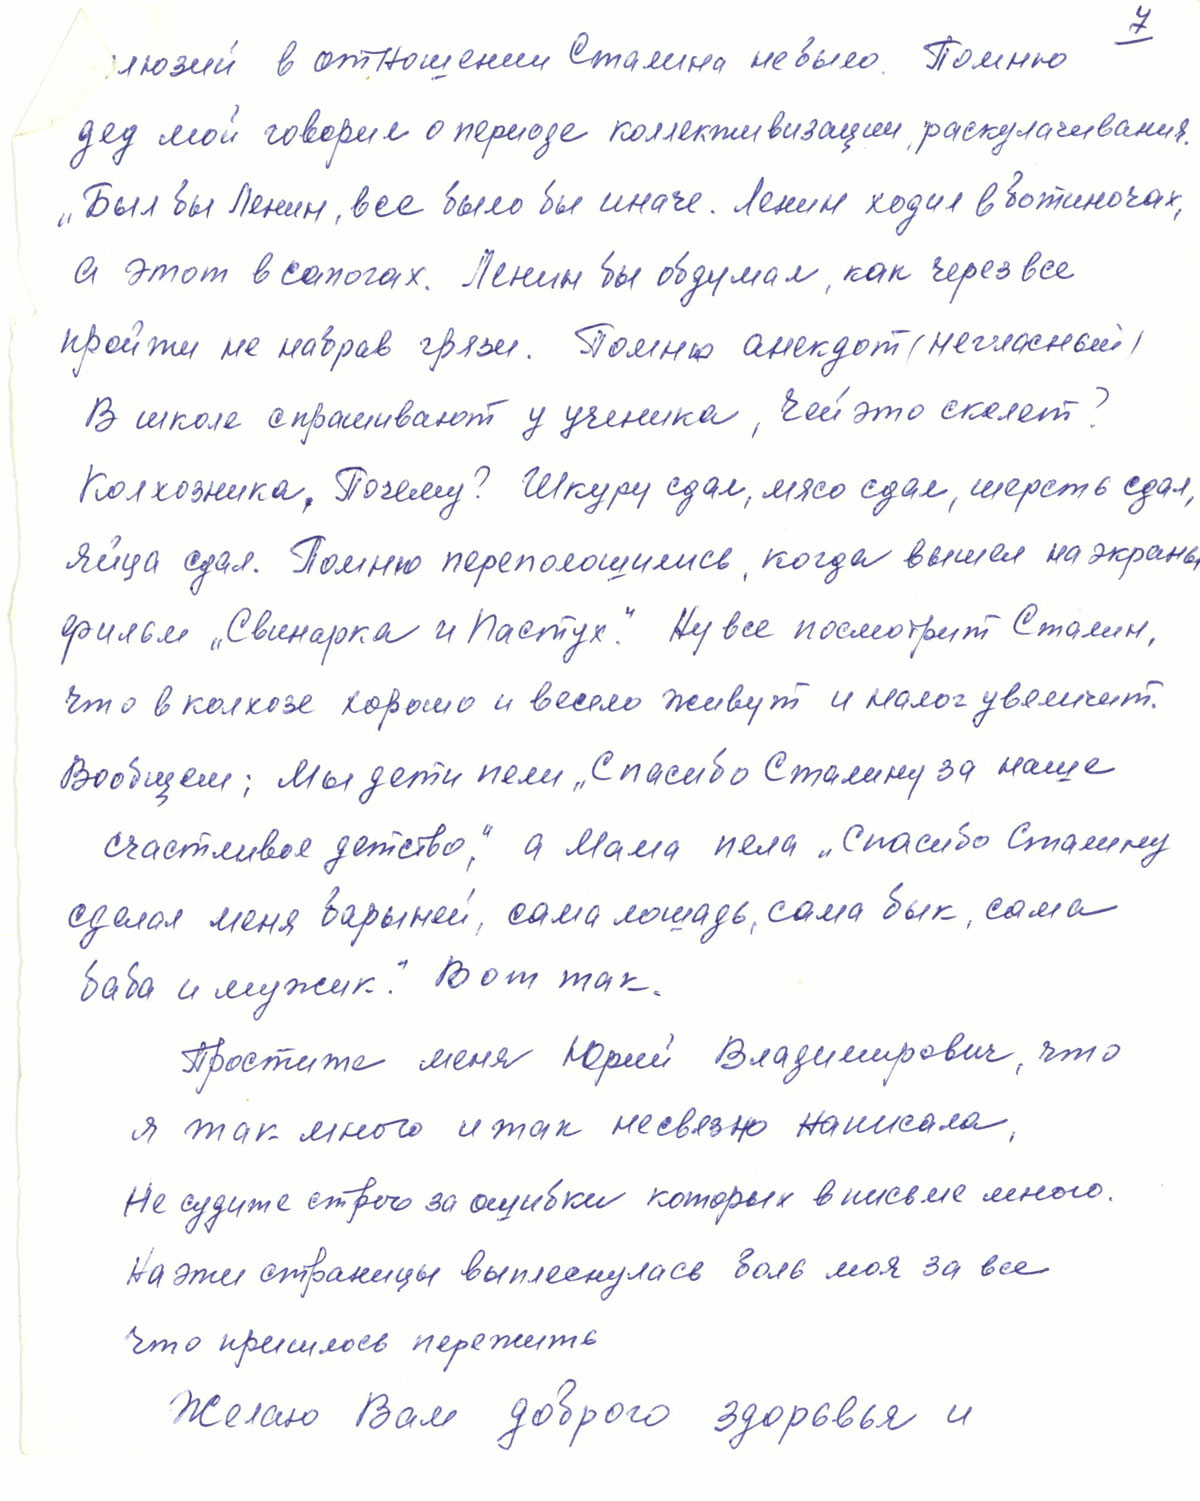 7
люзий в отношении Сталина небыло. Помню
дед мой говорил о периоде коллективизации, раскулачивания.
„Был бы Ленин, все было бы иначе. Ленин ходил в ботиночах,
а этот в сапогах. Ленин бы обдумал, как через все
пройти не набрав грязи. Помню анекдот (негласный)
В школе спрашивают у ученика, Чей это скелет?
Колхозника, Почему? Шкуру сдал, мясо сдал, шерсть сдал,
яйца сдал. Помню переполошились, когда вышел на экраны
фильм „Свинарка и Пастух". Ну все посмотрит Сталин,
что в колхозе хорошо и весело живут и налог увеличит.
Вообщем; Мы дети пели „Спасибо Сталину за наше
счастливое детство," а Мама пела „Спасибо Сталину
сделал меня барыней, сама лошадь, сама бык, сама
баба и мужик". Вот так.
Простите меня Юрий Владимирович, что
я так много и так несвязно написала,
Не судите строго за ошибки которых в письме много.
На эти страницы выплеснулась боль моя за все
что пришлось пережить
Желаю Вам доброго здоровья и